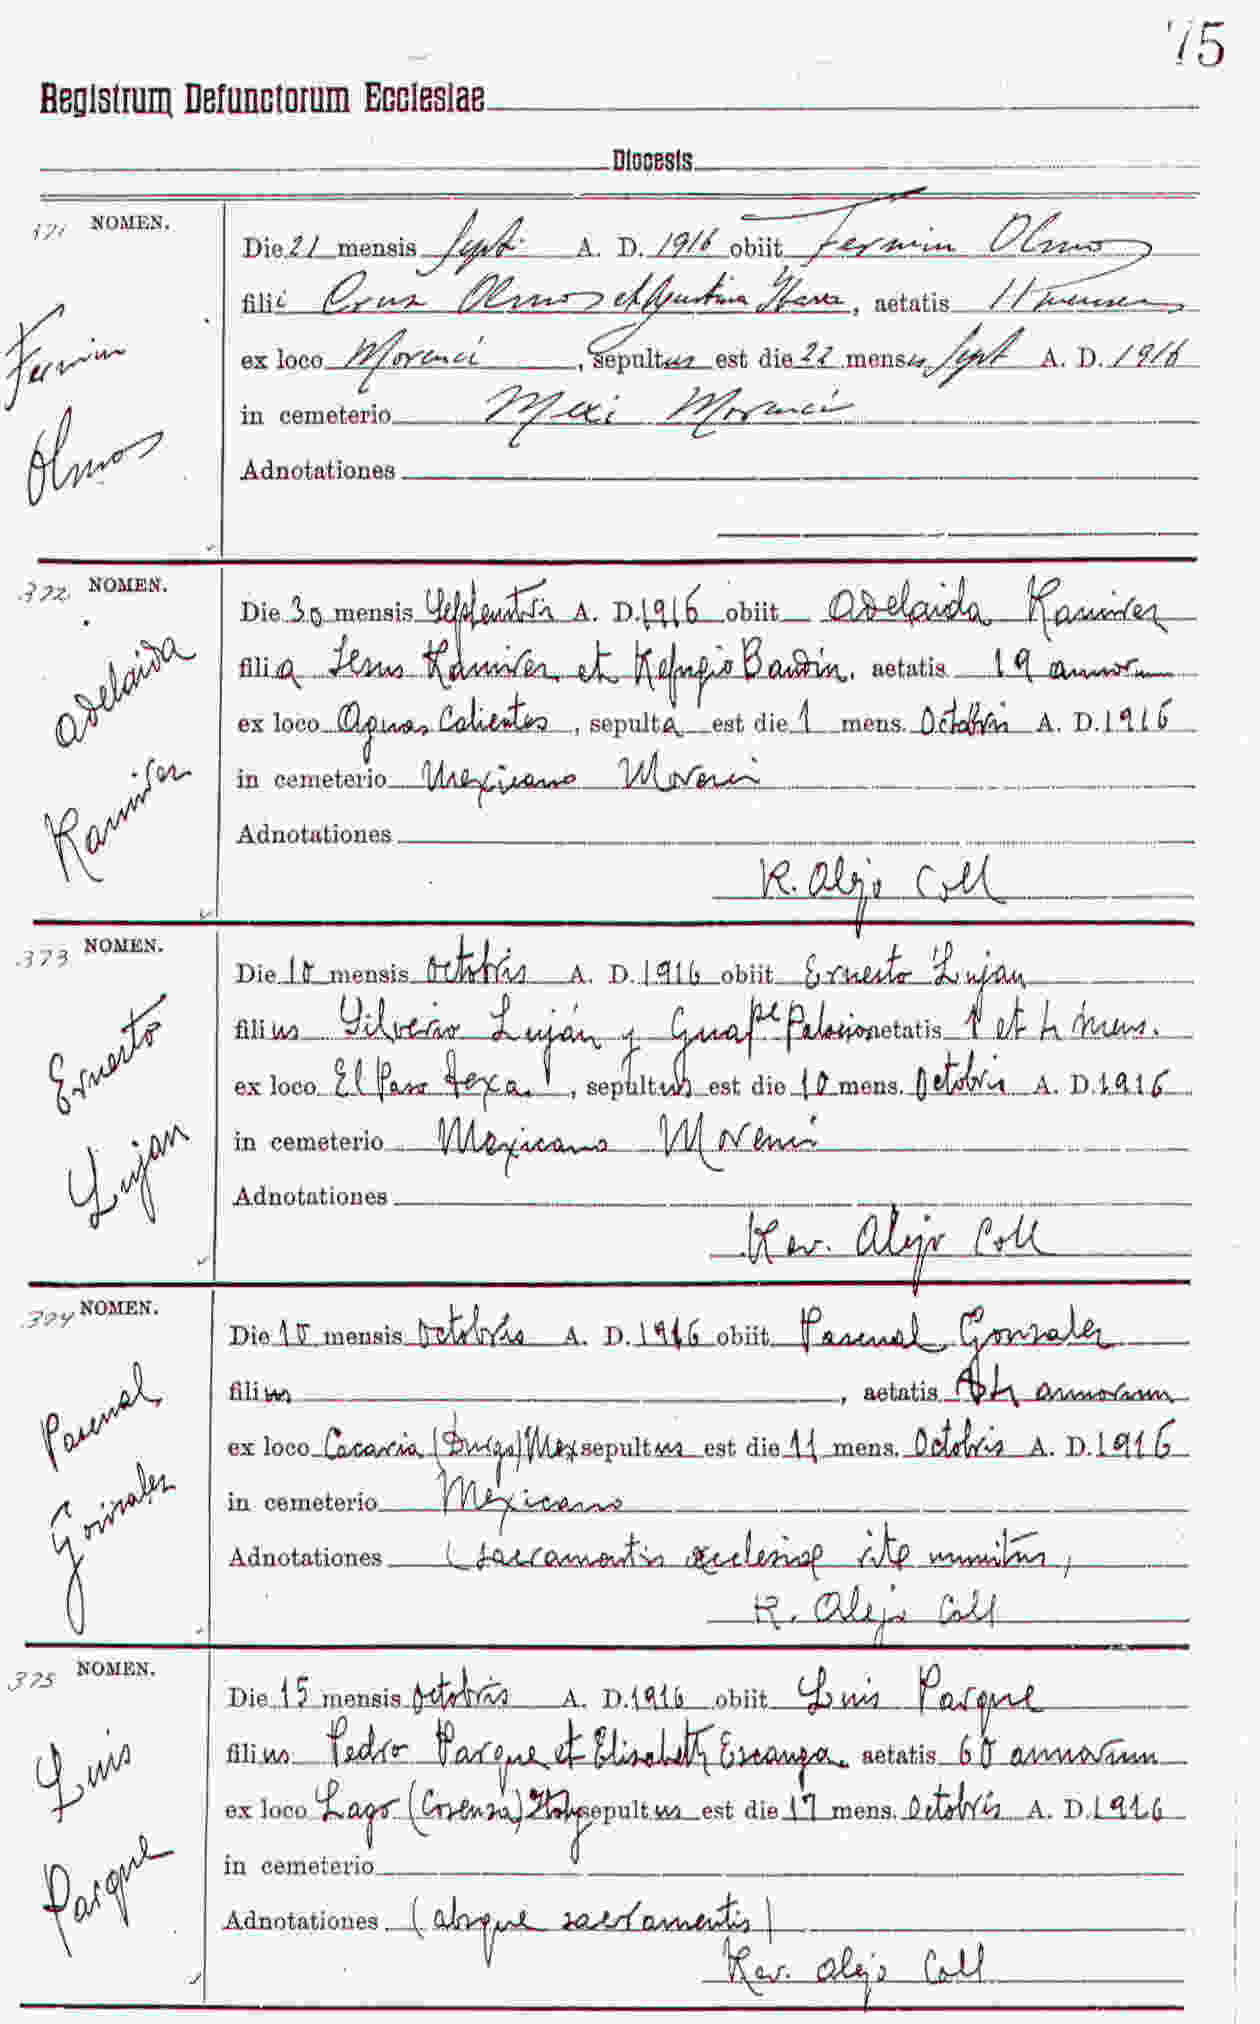 75
Registrum Defunctorum Ecclesiae
Diocesis
371 NOMEN.
Fermin
Olmos
Die 21 mensis Sept. A. D. 1916 obiit Fermin Olmos
filii Cruz Olmos et Justina Ybarra, aetatis 11 menses
ex loco Morenci, sepultus est die 22 mensis Sept A. D. 1916
in cemeterio Mexi Morenci
Adnotationes
372 NOMEN.
Adelaida
Ramirez
Die 30 mensis Septembris A. D. 1916 obiit Adelaida Ramirez
filia Jesus Ramirez et Refugio Baudin, aetatis 19 annorum
ex loco Aguas Calientes, sepulta est die 1 mens. Octobris A. D. 1916
in cemeterio Mexicano Morenci
Adnotationes
R. Alejo Coll
373 NOMEN.
Ernesto
Lujan
Die 10 mensis Octobris A. D. 1916 obiit Ernesto Lujan
filius Silverio Luján y Guape Palacios aetatis 1 et 4 mens.
ex loco El Paso Texa, sepultus est die 10 mens. Octobris A. D. 1916
in cemeterio Mexicano Morenci
Adnotationes
Rev. Alejo Coll
374 NOMEN.
Pascual
Gonzalez
Die 10 mensis Octobris A. D. 1916 obiit Pascual Gonzalez
filius , aetatis 84 annorum
ex loco Cacaria (Durgo) Mex sepultus est die 11 mens. Octobris A. D. 1916
in cemeterio Mexicano
Adnotationes (sacramentis ecclesiae rite munitus)
R. Alejo Coll
375 NOMEN.
Luis
Parque
Die 15 mensis Octobris A. D. 1916 obiit Luis Parque
filius Pedro Parque et Elisabeth Escanga, aetatis 60 annorum
ex loco Lago (Cosenza) Italy sepultus est die 17 mens. Octobris A. D. 1916
in cemeterio
Adnotationes (absque sacramentis)
Rev. Alejo Coll